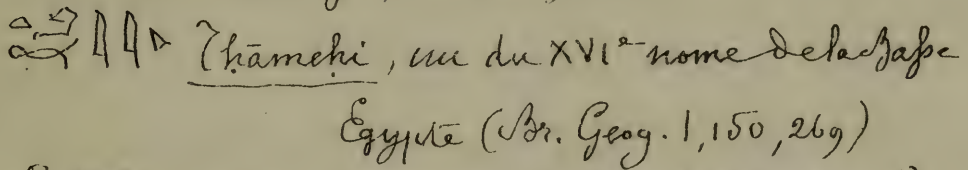 Thāmehi, uu du XVIe nome de la Basse
Égypte (Br. Geog. 1, 150, 269)